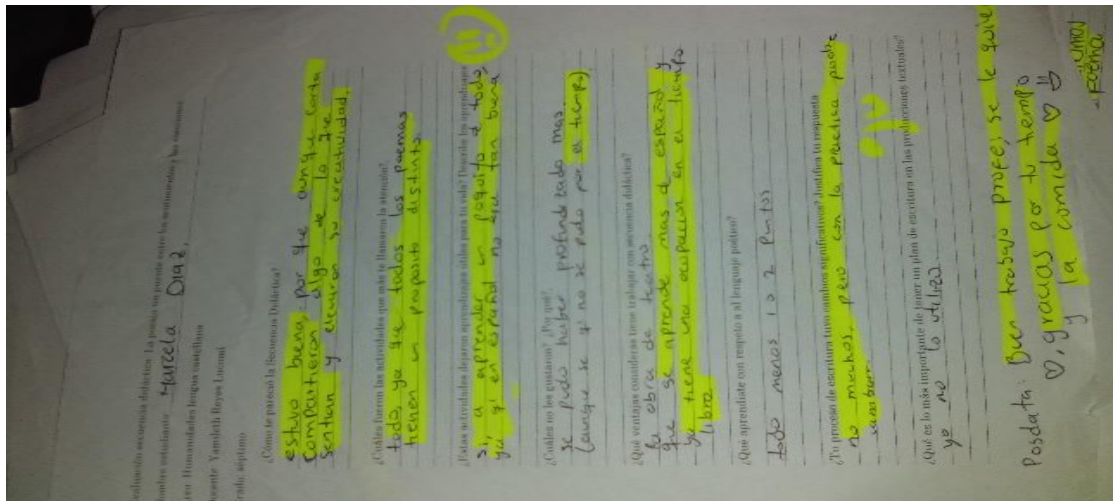 evaluación secuencia didáctica: La poesía un puente entre los sentimientos y las emociones
Nombre estudiante Marcela Diaz.
Área: Humanidades lengua castellana
Docente Yamileth Reyes Lucumí
Grado: séptimo
¿Cómo te pareció la Secuencia Didáctica?
estuvo buena por que aunque corta
Compartieron algo de lo que
sentian y elevaron su creatividad.
¿Cuáles fueron las actividades que más te llamaron la atención?
todo ya que todos los poemas
tienen un proposito distinto.
¿Estas actividades dejaron aprendizajes útiles para tu vida? Describe los aprendizajes
si, a aprender un poquito d todo
ya q' en español no era tan buena
¿Cuáles no les gustaron? ¿Por qué?
se pudo haber profundizado mas.
(aunque se q' no se pudo por el tiempo)
¿Qué ventajas consideras tiene trabajar con secuencia didáctica?
la obra de teatro
que se aprende mas d español y
se tiene una ocupacion en el tiempo
libro
¿Qué aprendiste con respeto a al lenguaje poético?
todo menos 1 o 2 puntos
¿Tu proceso de escritura tuvo cambios significativos? Justifica tu respuesta
no muchos, pero con la practica podre
¿Qué es lo más importante de tener un plan de escritura en las producciones textuales?
yo no lo utilizo
Posdata: Buen trabajo profes, se le quiere
♡, gracias por tu tiempo
y la comida ♡
poema